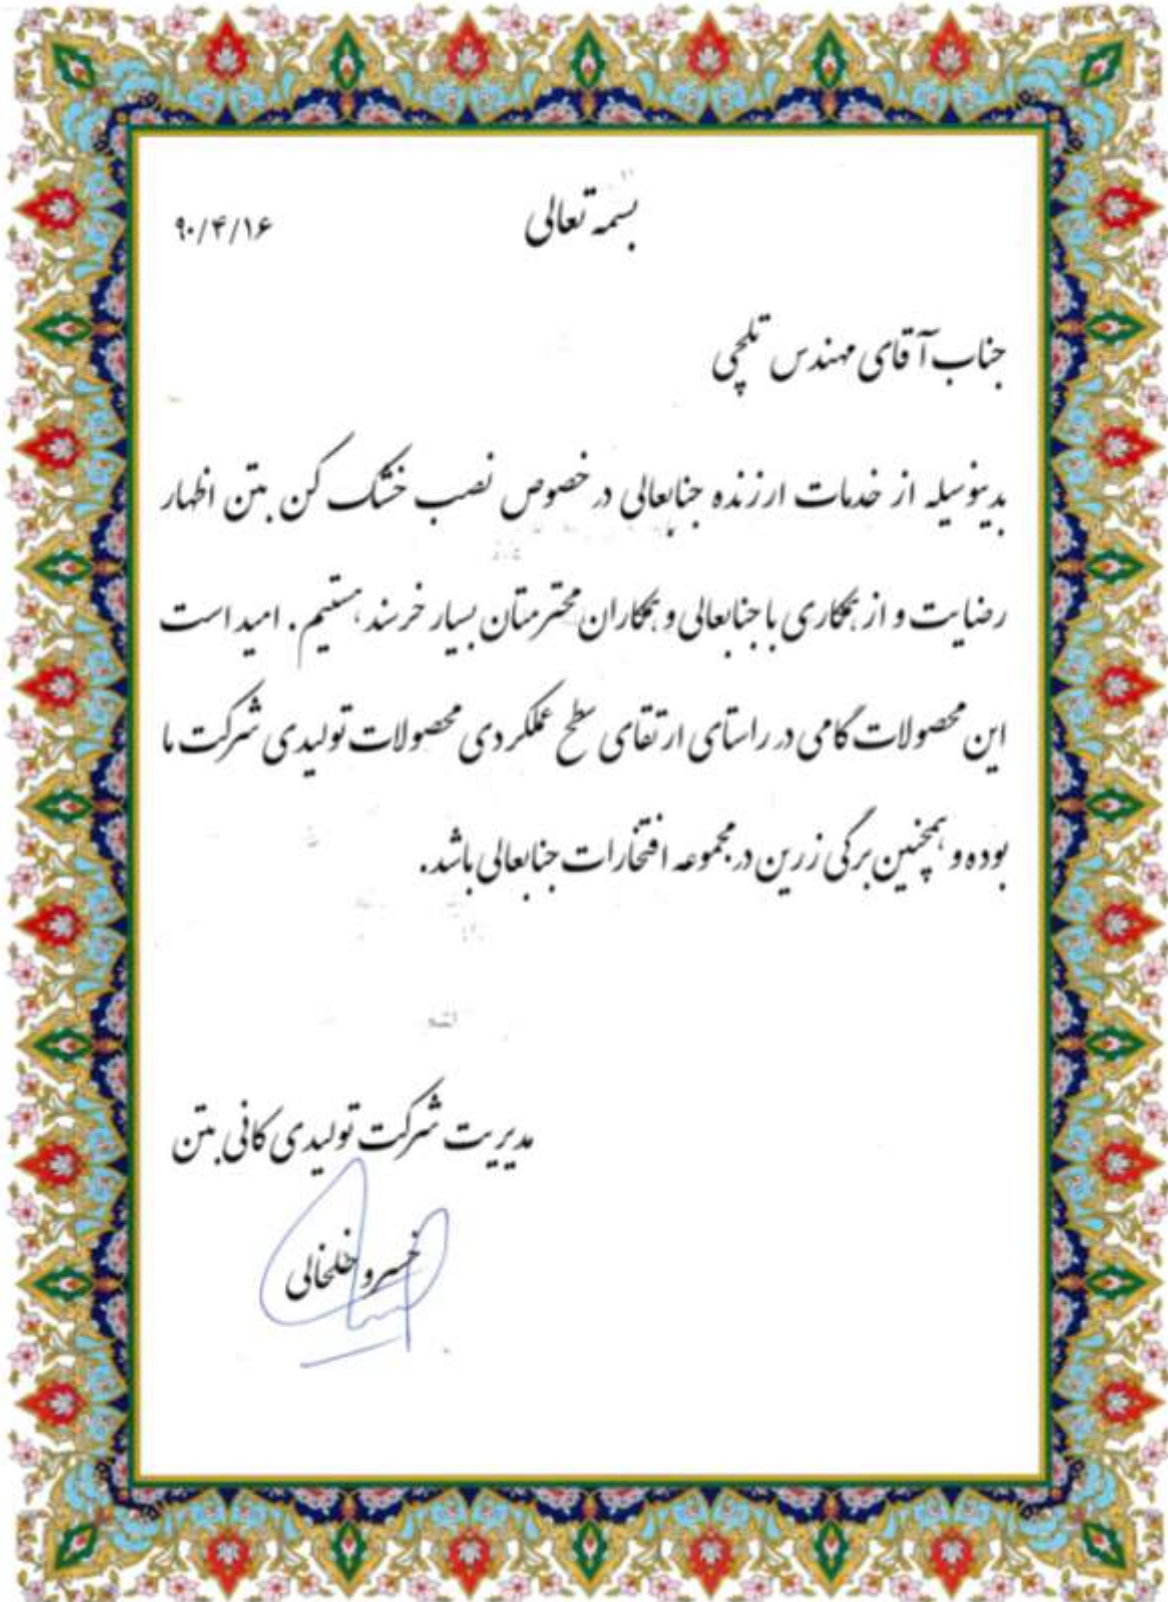 بسمه تعالی
۹۰/۴/۱۶
جناب آقای مهندس تلچی
بدینوسیله از خدمات ارزنده جنابعالی در خصوص نصب خشک کن بتن اظهار
رضایت و از همکاری با جنابعالی و همکاران محترمتان بسیار خرسند هستیم. امید است
این محصولات گامی در راستای ارتقای سطح عملکردی محصولات تولیدی شرکت ما
بوده و همچنین برگی زرین در مجموعه افتخارات جنابعالی باشد.
مدیریت شرکت تولیدی کانی بتن
خسرو خلخالی